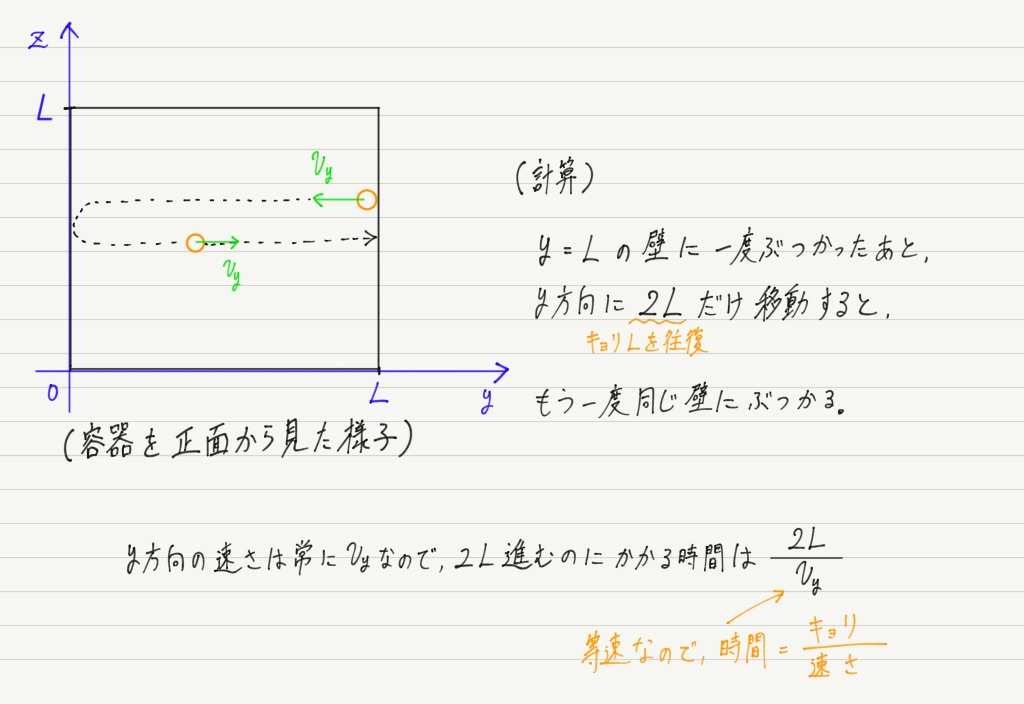 z
L
v_y
v_y
0
L
y
(容器を正面から見た様子)
(計算)
y = L の壁に一度ぶつかったあと,
y方向に 2L だけ移動すると,
キョリLを往復
もう一度同じ壁にぶつかる。
y方向の速さは常にv_yなので, 2L進むのにかかる時間は 2L/v_y
等速なので, 時間 = キョリ/速さ